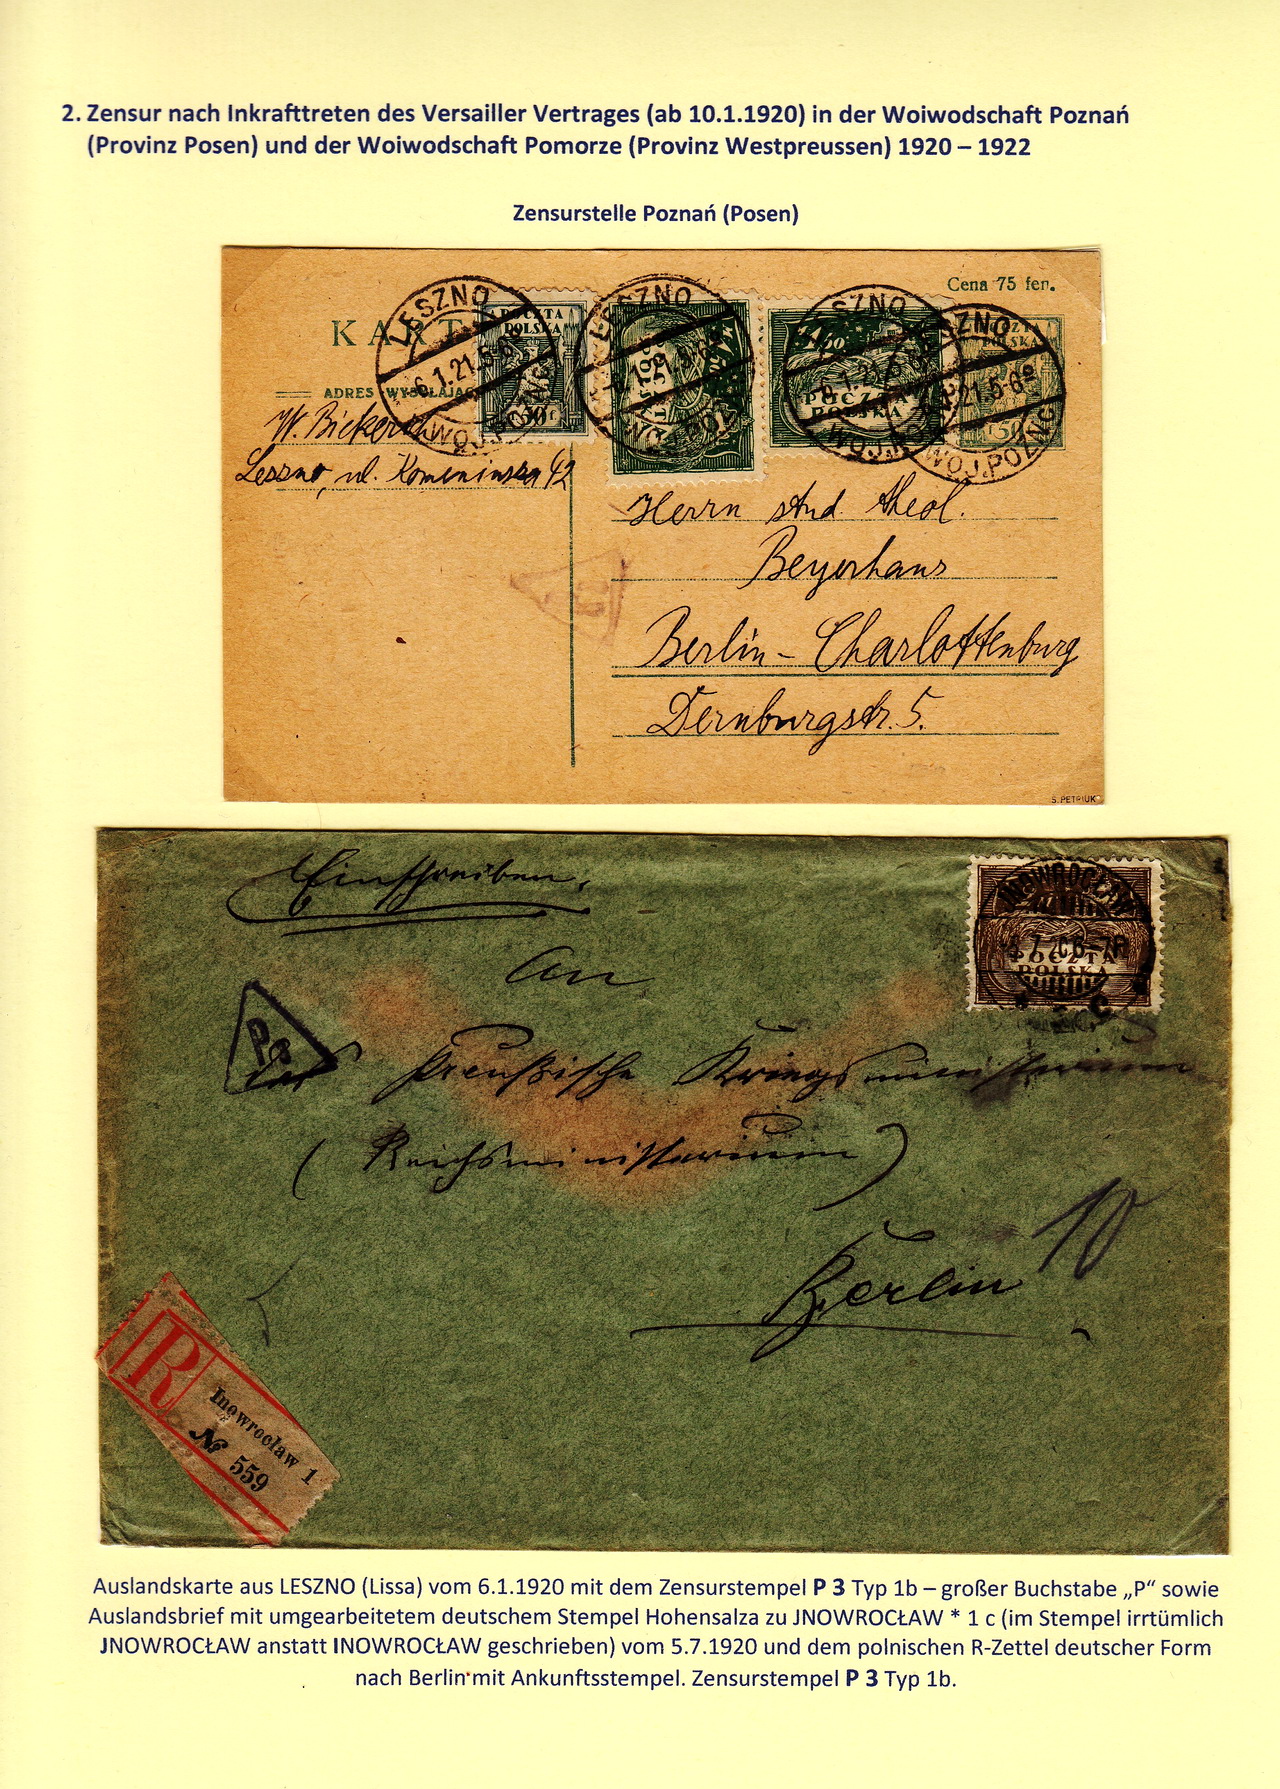 2. Zensur nach Inkrafttreten des Versailler Vertrages (ab 10.1.1920) in der Woiwodschaft Poznań
(Provinz Posen) und der Woiwodschaft Pomorze (Provinz Westpreussen) 1920 – 1922
Zensurstelle Poznań (Posen)
Cena 75 fen.
KART
LESZNO
6.1.21.5-6
WOJ.POZN.
POCZTA
POLSKA
50 f
LESZNO
POCZTA
POLSKA
LESZNO
21.5-6
WOJ.POZN.
ADRES WYSYŁAJĄC
Leszno, ul.
Herrn stud. theol.
Beyerhaus
Berlin – Charlottenburg
Dernburgstr. 5.
S. PETRIUK
Einschreiben.
An
Preußische Kriegsministerium
(Reichsministerium)
Berlin
JNOWROCŁAW
7.20 6-7
POCZTA
POLSKA
* C *
P3
R
Inowrocław 1
№ 559
Auslandskarte aus LESZNO (Lissa) vom 6.1.1920 mit dem Zensurstempel P 3 Typ 1b – großer Buchstabe „P“ sowie
Auslandsbrief mit umgearbeitetem deutschem Stempel Hohensalza zu JNOWROCŁAW * 1 c (im Stempel irrtümlich
JNOWROCŁAW anstatt INOWROCŁAW geschrieben) vom 5.7.1920 und dem polnischen R-Zettel deutscher Form
nach Berlin mit Ankunftsstempel. Zensurstempel P 3 Typ 1b.